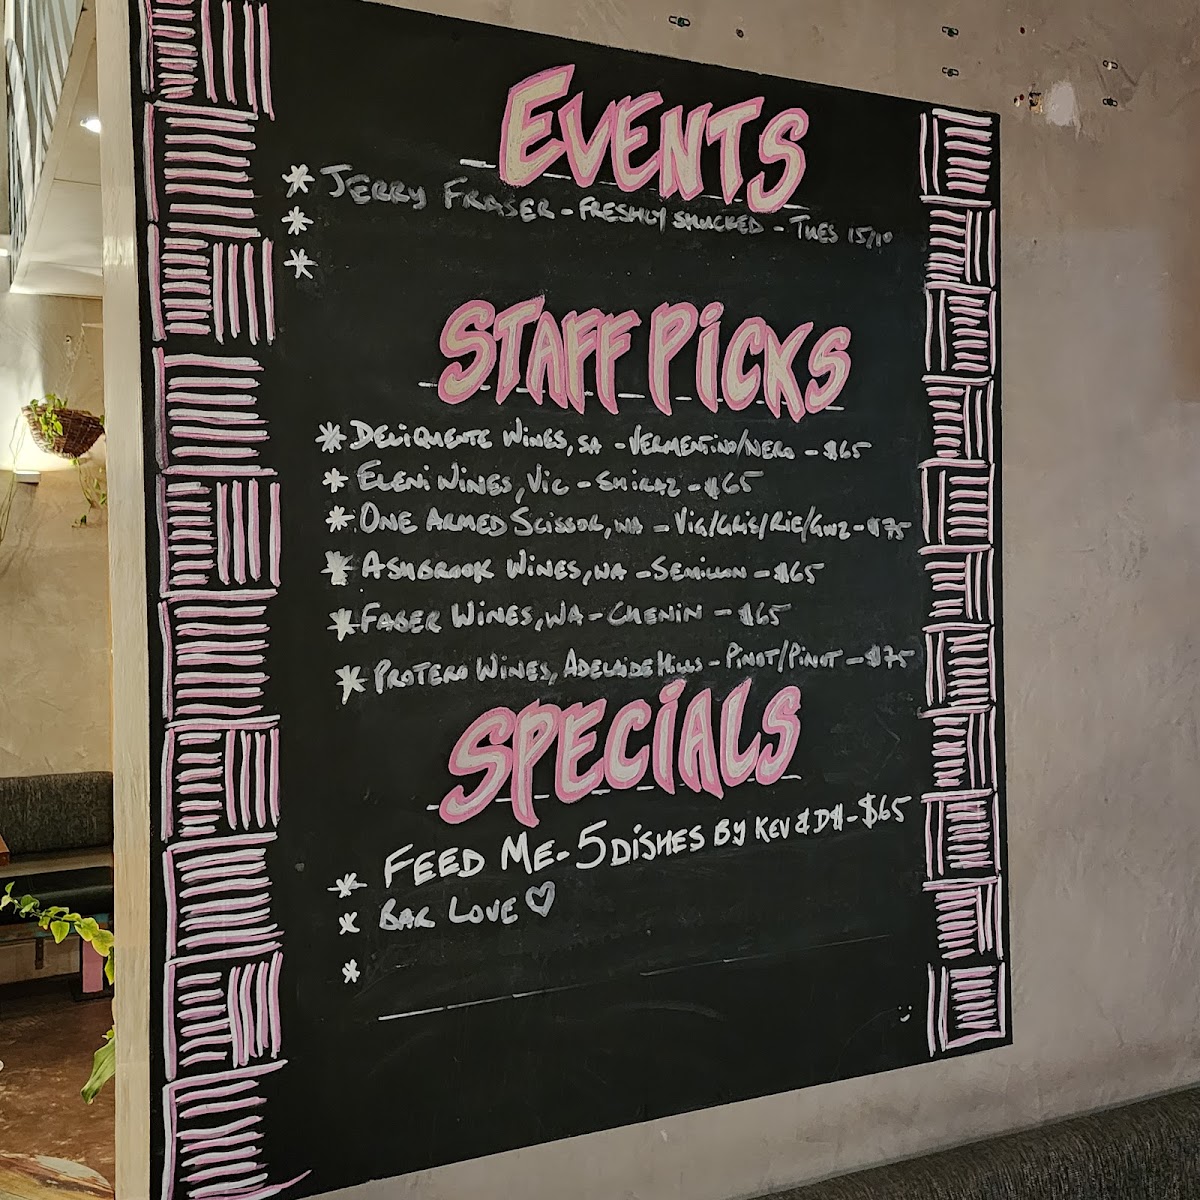 EVENTS
* JERRY FRASER - FRESHLY SHUCKED - TUES 15/10
*
*
STAFF PICKS
* DELIQUENTE WINES, SA - VERMENTINO/NERO - $65
* ELENI WINES, VIC - SHIRAZ - $65
* ONE ARMED SCISSOR, WA - VIG/GRIS/RIE/GWZ - $75
* ASHBROOK WINES, WA - SEMILLON - $65
* FABER WINES, WA - CHENIN - $65
* PROTERO WINES, ADELAIDE HILLS - PINOT/PINOT - $75
SPECIALS
* FEED ME - 5 DISHES BY KEV & - $65
* BAR LOVE ♡
*